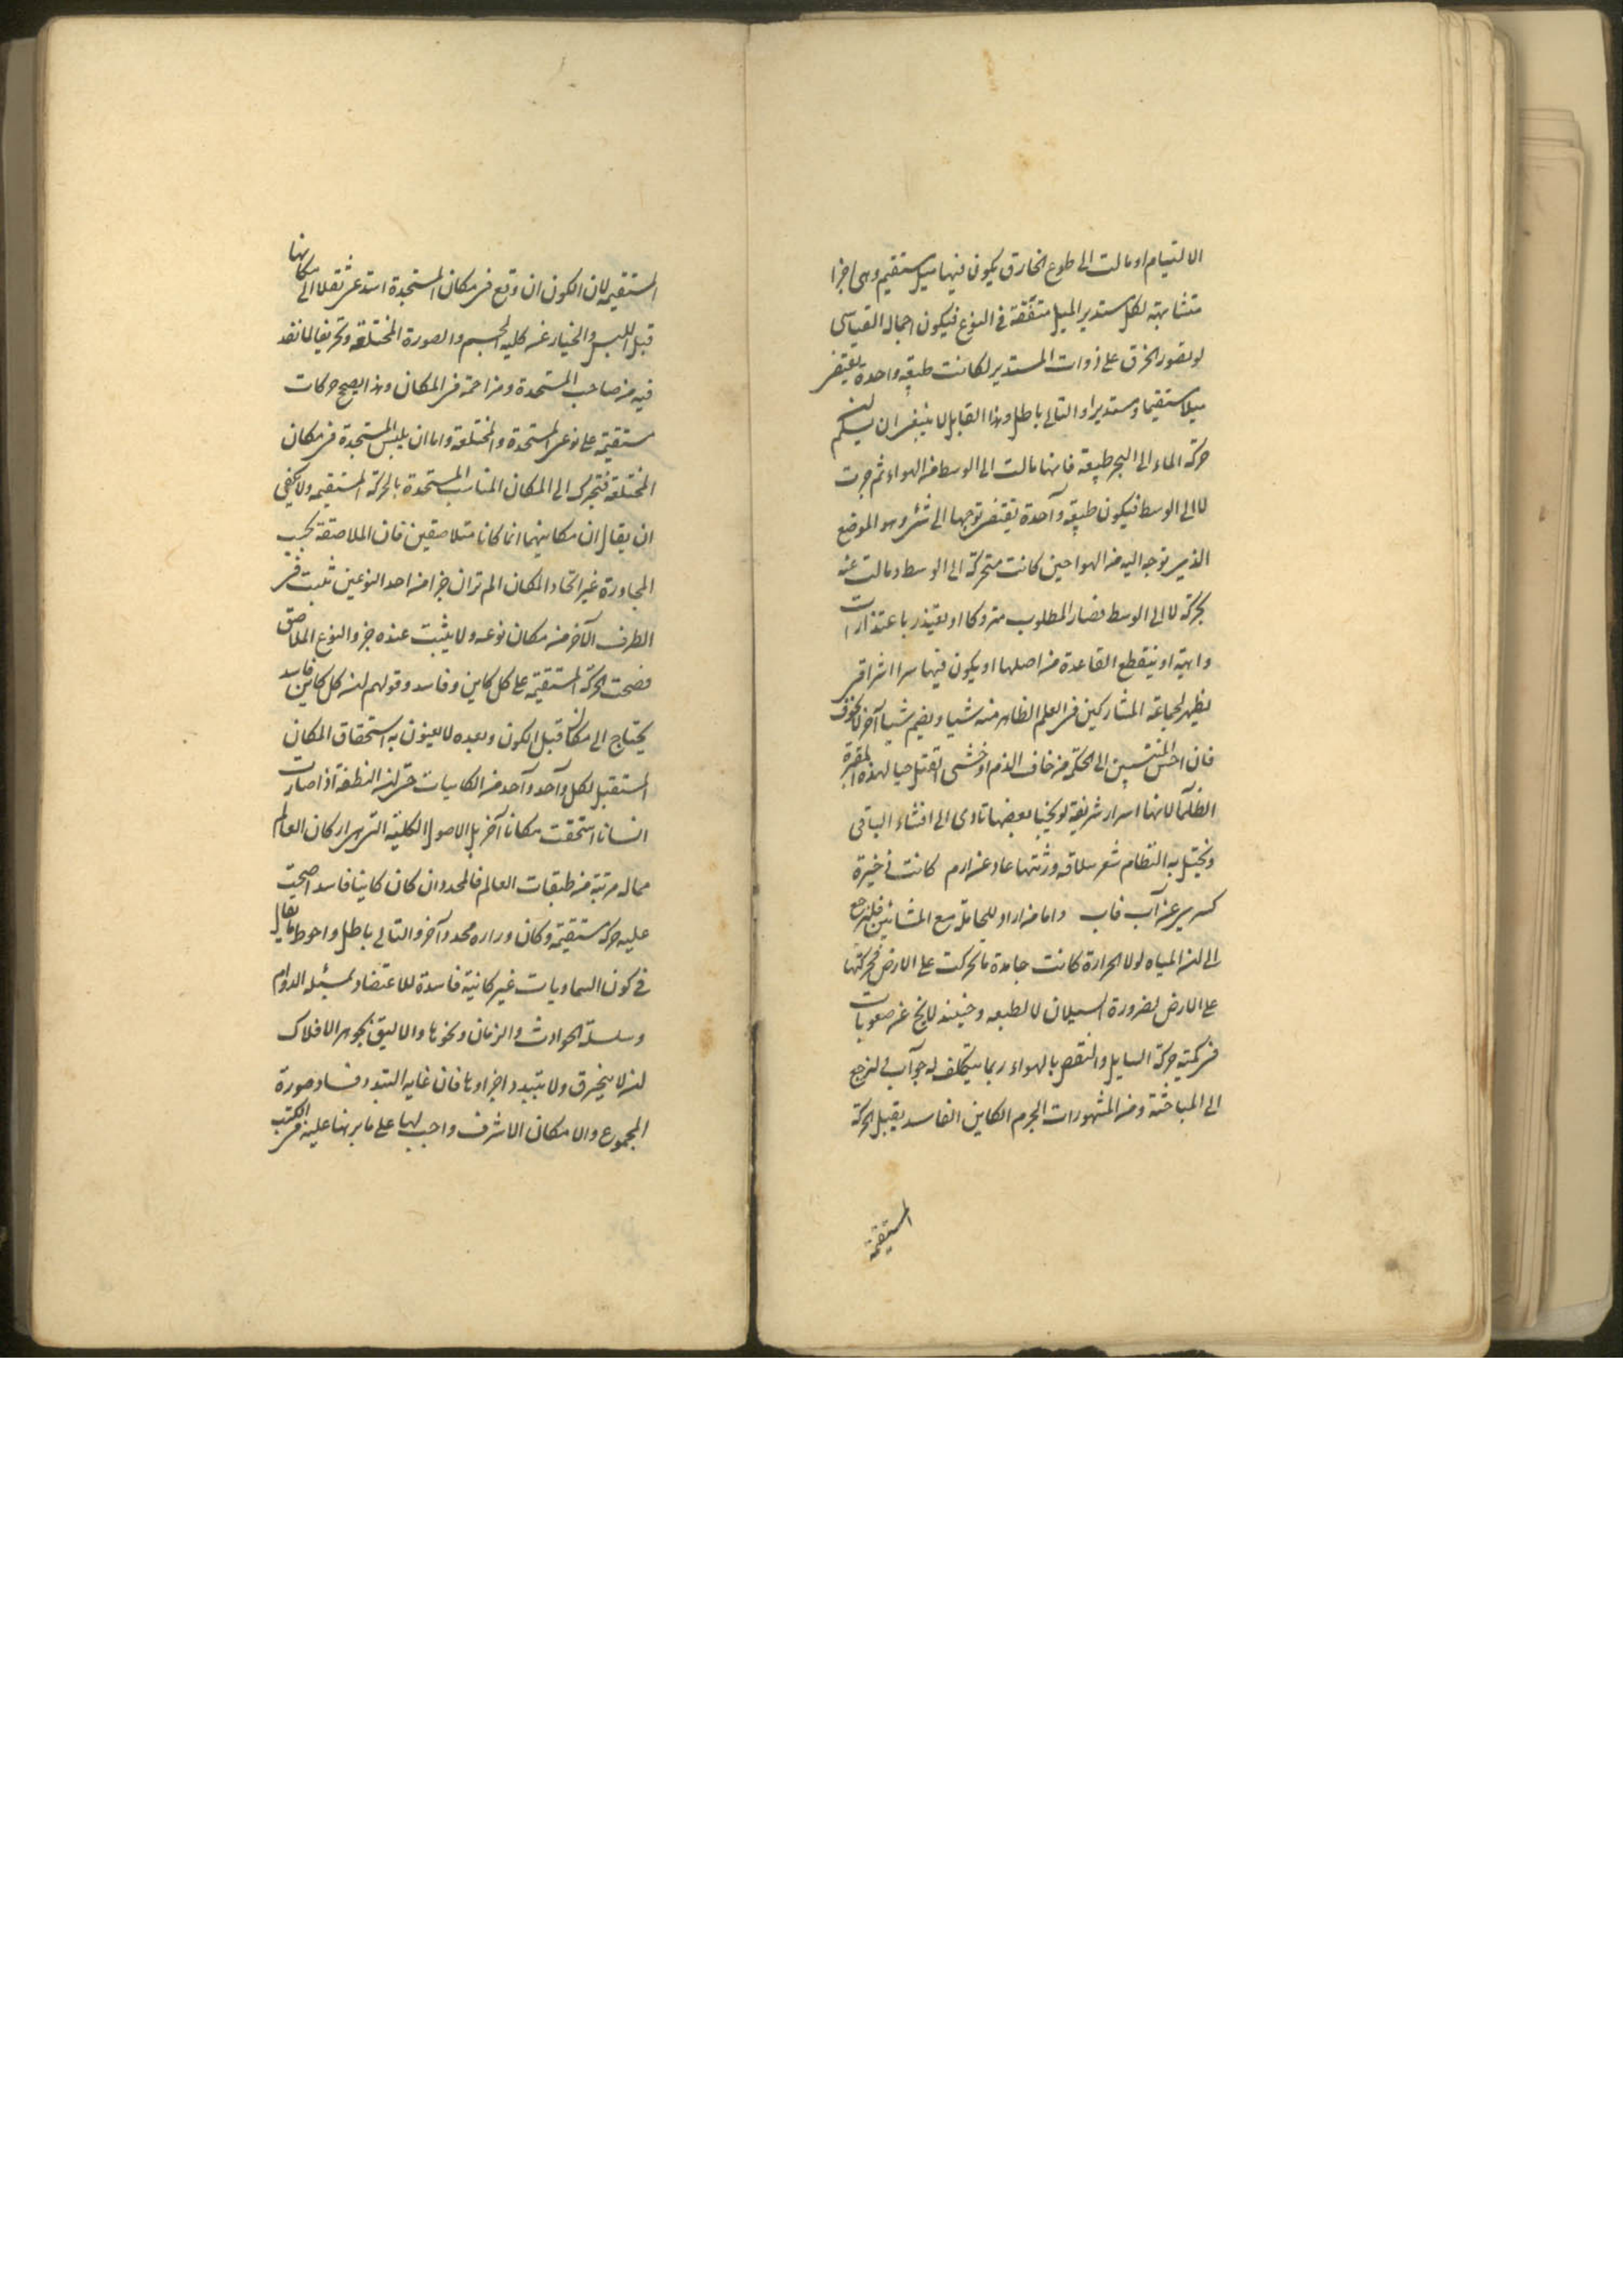 الالتيام او مالت الى طوع الخارق يكون فيها ميل مستقيم وهى اجزا
متشابهة لكل مستدير الميل متفقة فى النوع فيكون اجمال القياس
لو تصور الخرق على ذوات المستدير لكانت طبيعة واحدة يقتضى
ميلا مستقيما ومستديرا والتالى باطل وهذا القايل لا ينبغى ان يسلم ان
حركة الماء الى البحر طبيعة فانها مالت الى الوسط من الهواء ثم جرت
لا الى الوسط فيكون طبيعة واحدة يقتضى توجها الى شئ وهو الموضع
الذى توجه اليه من الهوا حين كانت متحركة الى الوسط ومالت عنه
بحركة لا الى الوسط فصار المطلوب متروكا او يعتذر باعتذارات
واهية او ينقطع القاعدة من اصلها او يكون فيها سرا اشراقى
يظهر لجماعة المشاركين فى العلم الظاهر منه شيا ويضم شيا آخر لا لخوف
فان اخس المنتسبين الى الحكمة من خاف الذم او خشى القتل حيا لهذه المقبرة
الظلما لانها اسرار شريفة لو يخبا بعضها تادى الى افشاء الباقى
ويختل به النظام شعر سلافه ورثتها عاد عن ارم كانت ذخيرة
كسرى عن آب فاب واما من اراد للمحاملة مع المشائين فلنرجع
الى ان المياه لولا الحرارة كانت جامدة ما تحركت على الارض فحركتها
على الارض لضرورة السيلان لا لطبعه وحينئذ لا يخ عن صعوبات
فى كمية حركة السايل والنقض بالهواء ربما يتكلف له جواب فلنرجع
الى المباحثة ومن المشهورات الجرم الكاين الفاسد يقبل الحركة
المستقيمة
المستقيمة لان الكون ان وقع فى مكان المستجدة استدعى ثقلا الى مكانها
قبل اللبس والخيار عن كليه الجسم والصورة المختلفة وتحريفا لما نفد
فيه من صاحب المستجدة ومزاحمة فى المكان وهذا يصح حركات
مستقيمة على نوعى المستجدة والمختلعة واما ان يلبس المستجدة فى مكان
المختلعة فتتحرك الى المكان المناسب المستجدة بالحركة المستقيمة ولا يكفى
ان يقال ان مكانيهما انما كانا متلاصقين فان الملاصقة بحسب
المجاورة غير اتحاد المكان الم تر ان جزا من احد النوعين ثبت فى
الطرف الآخر من مكان نوعه ولا يثبت عنده جزو النوع الملاصق
فصحت الحركة المستقيمة على كل كاين وفاسد وقولهم ان كل كاين فاسد
يحتاج الى مكان قبل الكون وبعده لا يعنون به استحقاق المكان
المستقبل لكل واحد واحد من الكاينات حتى ان النطفة اذا صارت
انسانا استحقت مكانا آخر بل الاصول الكلية التى هى اركان العالم
مما له مرتبة من طبقات العالم فالمحدد ان كان كاينا فاسدا صحت
عليه حركة مستقيمة وكان وراره محدد آخر والتالى باطل واحوط ما يقال
فى كون السماويات غير كانية فاسدة للاعتضاد بمسئله الدوام
وسلسلة الحوادث والزمان ونحوها والاليق بجوهر الافلاك
ان لا ينخرق ولا يتبدد اجزاوها فان غايه التبدد فساد صورة
المجموع والامكان الاشرف واجب لها على ما برهنا عليه فى الكتب